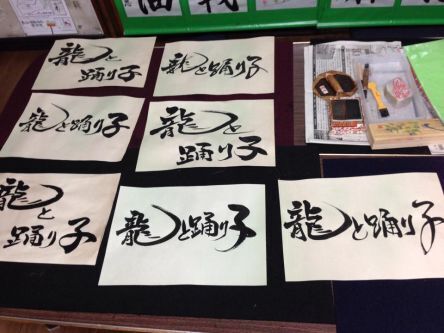 龍と
踊り子
龍と踊り子
龍と踊り子
龍と
踊り子
龍と
踊り子
龍と踊り子
龍と踊り子